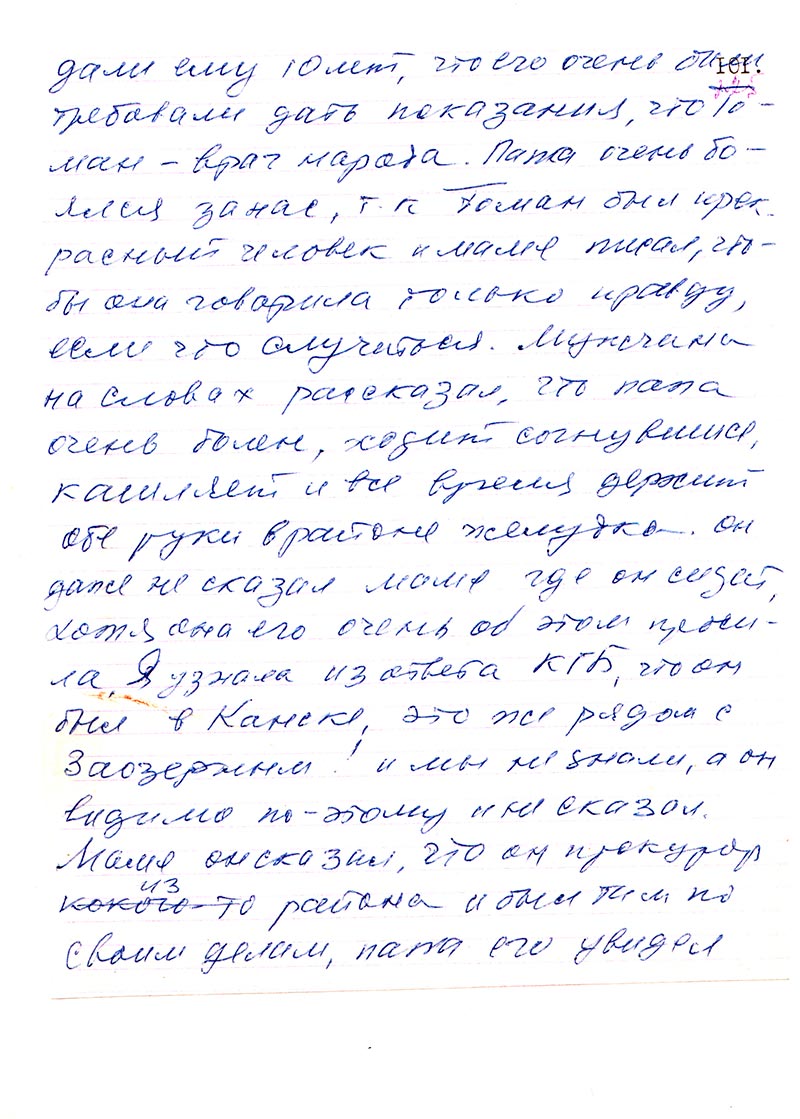 101.
дали ему 10 лет, что его очень били
требовали дать показания, что Го-
ман – враг народа. Папа очень бо-
ялся за нас, т.к Гоман был прек-
расный человек и маме писал, что-
бы она говорила только правду,
если что случиться. Мужчина
на словах рассказал, что папа
очень болен, ходит согнувшись,
кашляет и все время держит
обе руки в районе желудка. он
даже не сказал маме где он сидит,
хотя она его очень об этом проси-
ла. Я узнала из ответа КГБ, что он
был в Канске, это же рядом с
Заозерным! и мы не знали, а он
видимо по-этому и не сказал.
Маме он сказал, что он прокурор
из
кокого-то района и был там по
своим делам, папа его увидел